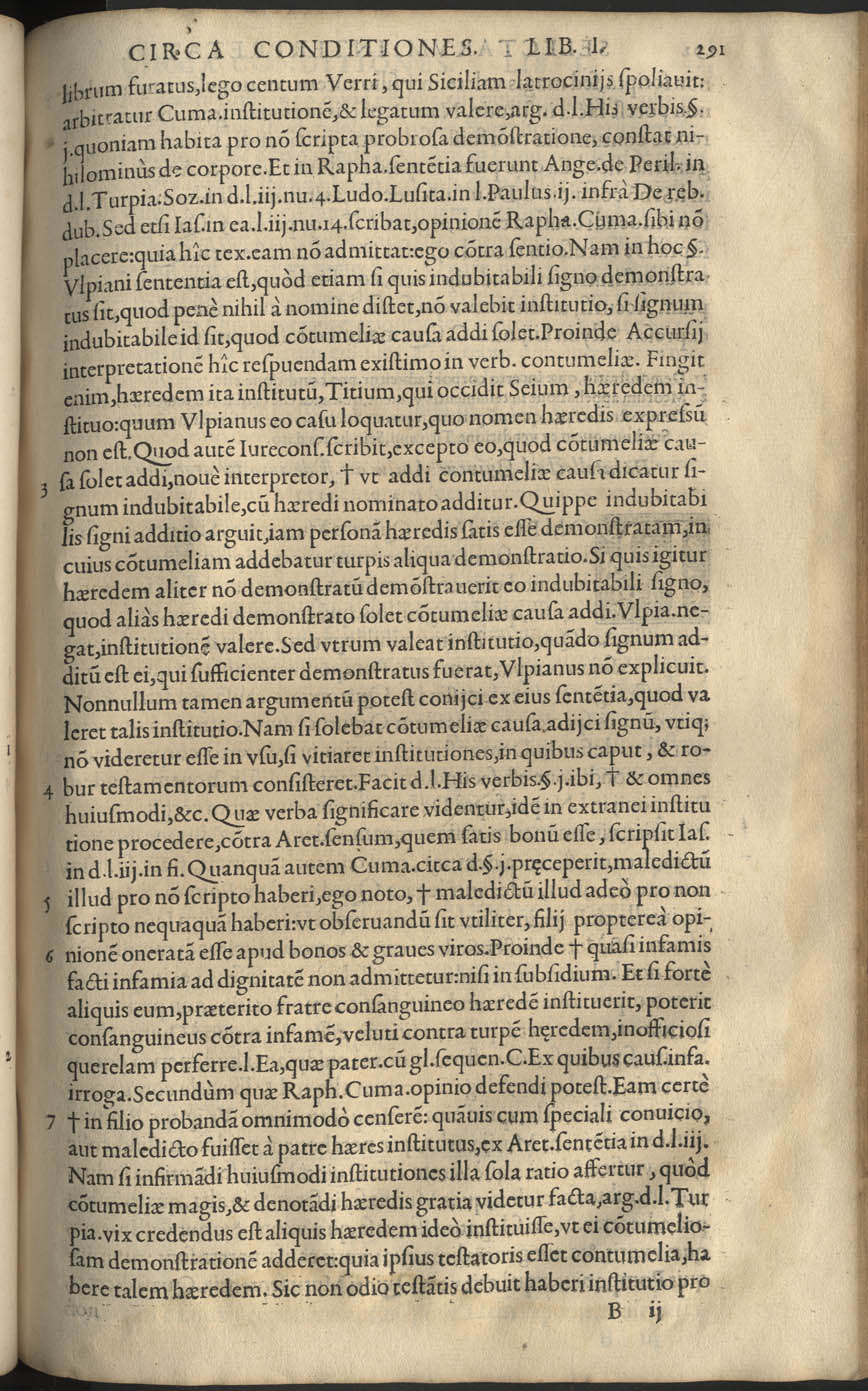 CIRCA CONDITIONES. LIB. I. 291
librum furatus,lego centum Verri, qui Siciliam latrocinijs ſpoliauit:
arbitratur Cuma.inſtitutionẽ,& legatum valere,arg. d.l.His verbis.§.
j.quoniam habita pro nõ ſcripta probroſa demõſtratione, conſtat ni-
hilominùs de corpore.Et in Rapha.ſentẽtia fuerunt Ange.de Peril. in
d.l.Turpia.Soz.in d.l.iij.nu.4.Ludo.Luſita.in l.Paulus.ij. infrà De reb.
dub.Sed etſi Iaſ.in ea.l.iij.nu.14.ſcribat,opinionẽ Rapha.Cuma.ſibi nõ
placere:quia hîc tex.eam nõ admittat:ego cõtra ſentio.Nam in hoc §.
Vlpiani ſententia eſt,quòd etiam ſi quis indubitabili ſigno demonſtra
tus ſit,quod penè nihil à nomine diſtet,nõ valebit inſtitutio, ſi ſignum
indubitabile id ſit,quod cõtumeliæ cauſa addi ſolet.Proinde Accurſij
interpretationẽ hîc reſpuendam exiſtimo in verb. contumeliæ. Fingit
enim,hæredem ita inſtitutũ,Titium,qui occidit Seium, hæredem in-
ſtituo:quum Vlpianus eo caſu loquatur,quo nomen hæredis expreſsũ
non eſt.Quod autẽ Iureconſ.ſcribit,excepto eo,quod cõtumeliæ cau-
3 ſa ſolet addi,nouè interpretor, † vt addi contumeliæ cauſa dicatur ſi-
gnum indubitabile,cũ hæredi nominato additur.Quippe indubitabi
lis ſigni additio arguit,iam perſonã hæredis ſatis eſſe demonſtratam,in
cuius cõtumeliam addebatur turpis aliqua demonſtratio.Si quis igitur
hæredem aliter nõ demonſtratũ demõſtrauerit eo indubitabili ſigno,
quod aliàs hæredi demonſtrato ſolet cõtumeliæ cauſa addi.Vlpia.ne-
gat,inſtitutionẽ valere.Sed vtrum valeat inſtitutio,quãdo ſignum ad-
ditũ eſt ei,qui ſufficienter demonſtratus fuerat,Vlpianus nõ explicuit.
Nonnullum tamen argumentũ poteſt conijci ex eius ſentẽtia,quod va
leret talis inſtitutio.Nam ſi ſolebat cõtumeliæ cauſa adijci ſignũ, vtiq;
nõ videretur eſſe in vſu,ſi vitiaret inſtitutiones,in quibus caput, & ro-
4 bur teſtamentorum conſiſteret.Facit d.l.His verbis.§.j.ibi, † & omnes
huiuſmodi,&c.Quæ verba ſignificare videntur,idẽ in extranei inſtitu
tione procedere,cõtra Aret.ſenſum,quem ſatis bonũ eſſe, ſcripſit Iaſ.
in d.l.iij.in fi.Quanquã autem Cuma.circa d.§.j.pręceperit,maledictũ
5 illud pro nõ ſcripto haberi,ego noto, † maledictũ illud adeò pro non
ſcripto nequaquã haberi:vt obſeruandũ ſit vtiliter, filij proptereà opi-
6 nionẽ oneratã eſſe apud bonos & graues viros.Proinde † quaſi infamis
facti infamia ad dignitatẽ non admittetur:niſi in ſubſidium. Et ſi fortè
aliquis eum,præterito fratre conſanguineo hæredẽ inſtituerit, poterit
conſanguineus cõtra infamẽ,veluti contra turpẽ hęredem,inofficioſi
querelam perferre.l.Ea,quæ pater.cũ gl.ſequen.C.Ex quibus cauſ.infa.
irroga.Secundùm quæ Raph.Cuma.opinio defendi poteſt.Eam certè
7 † in filio probandã omnimodò cenſerẽ: quãuis cum ſpeciali conuicio,
aut maledicto fuiſſet à patre hæres inſtitutus,ex Aret.ſentẽtia in d.l.iij.
Nam ſi infirmãdi huiuſmodi inſtitutiones illa ſola ratio affertur, quòd
cõtumeliæ magis,& denotãdi hæredis gratia videtur facta,arg.d.l.Tur
pia.vix credendus eſt aliquis hæredem ideò inſtituiſſe,vt ei cõtumelio-
ſam demonſtrationẽ adderet:quia ipſius teſtatoris eſſet contumelia,ha
bere talem hæredem. Sic non odio teſtãtis debuit haberi inſtitutio pro
B ij